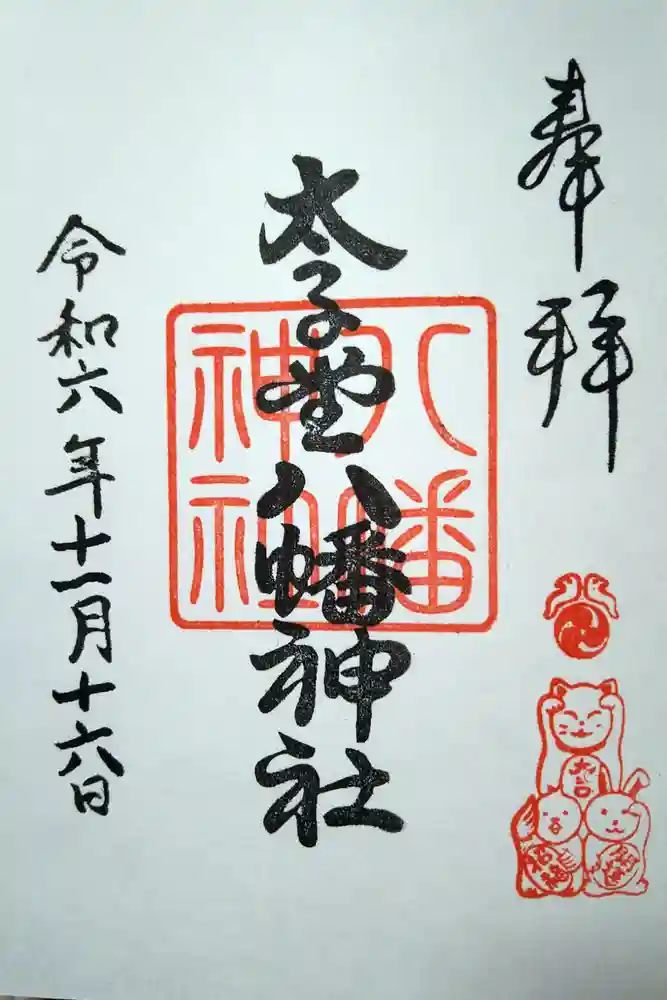 奉拝
太子堂八幡神社
八幡
神社
令和六年十一月十六日